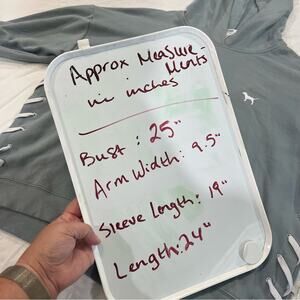 Approx Measure-
ments
in inches
Bust : 25"
Arm Width: 9.5"
Sleeve Length: 19"
Length: 24"